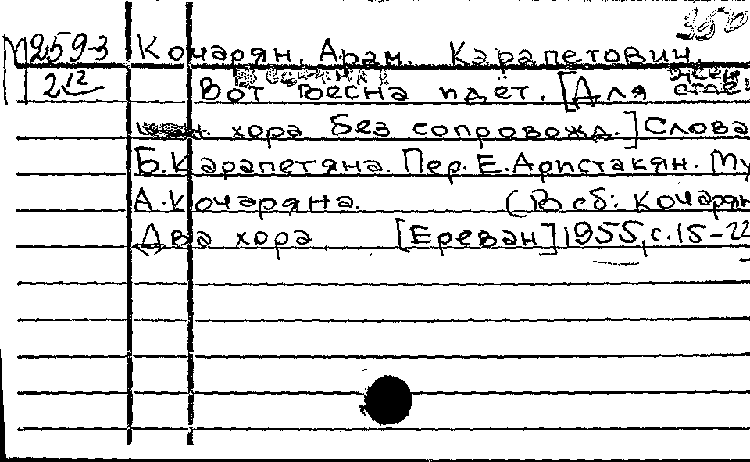 350
М2593 Кочарян, Арам. Карапетович
2 12 Вот весна идет. [Для
хора без сопровожд.] Слова
Б. Карапетяна. Пер. Е. Аристакян. Му
А. Кочаряна. (В сб: Кочарян
Два хора [Ереван] 1955, с. 15-22